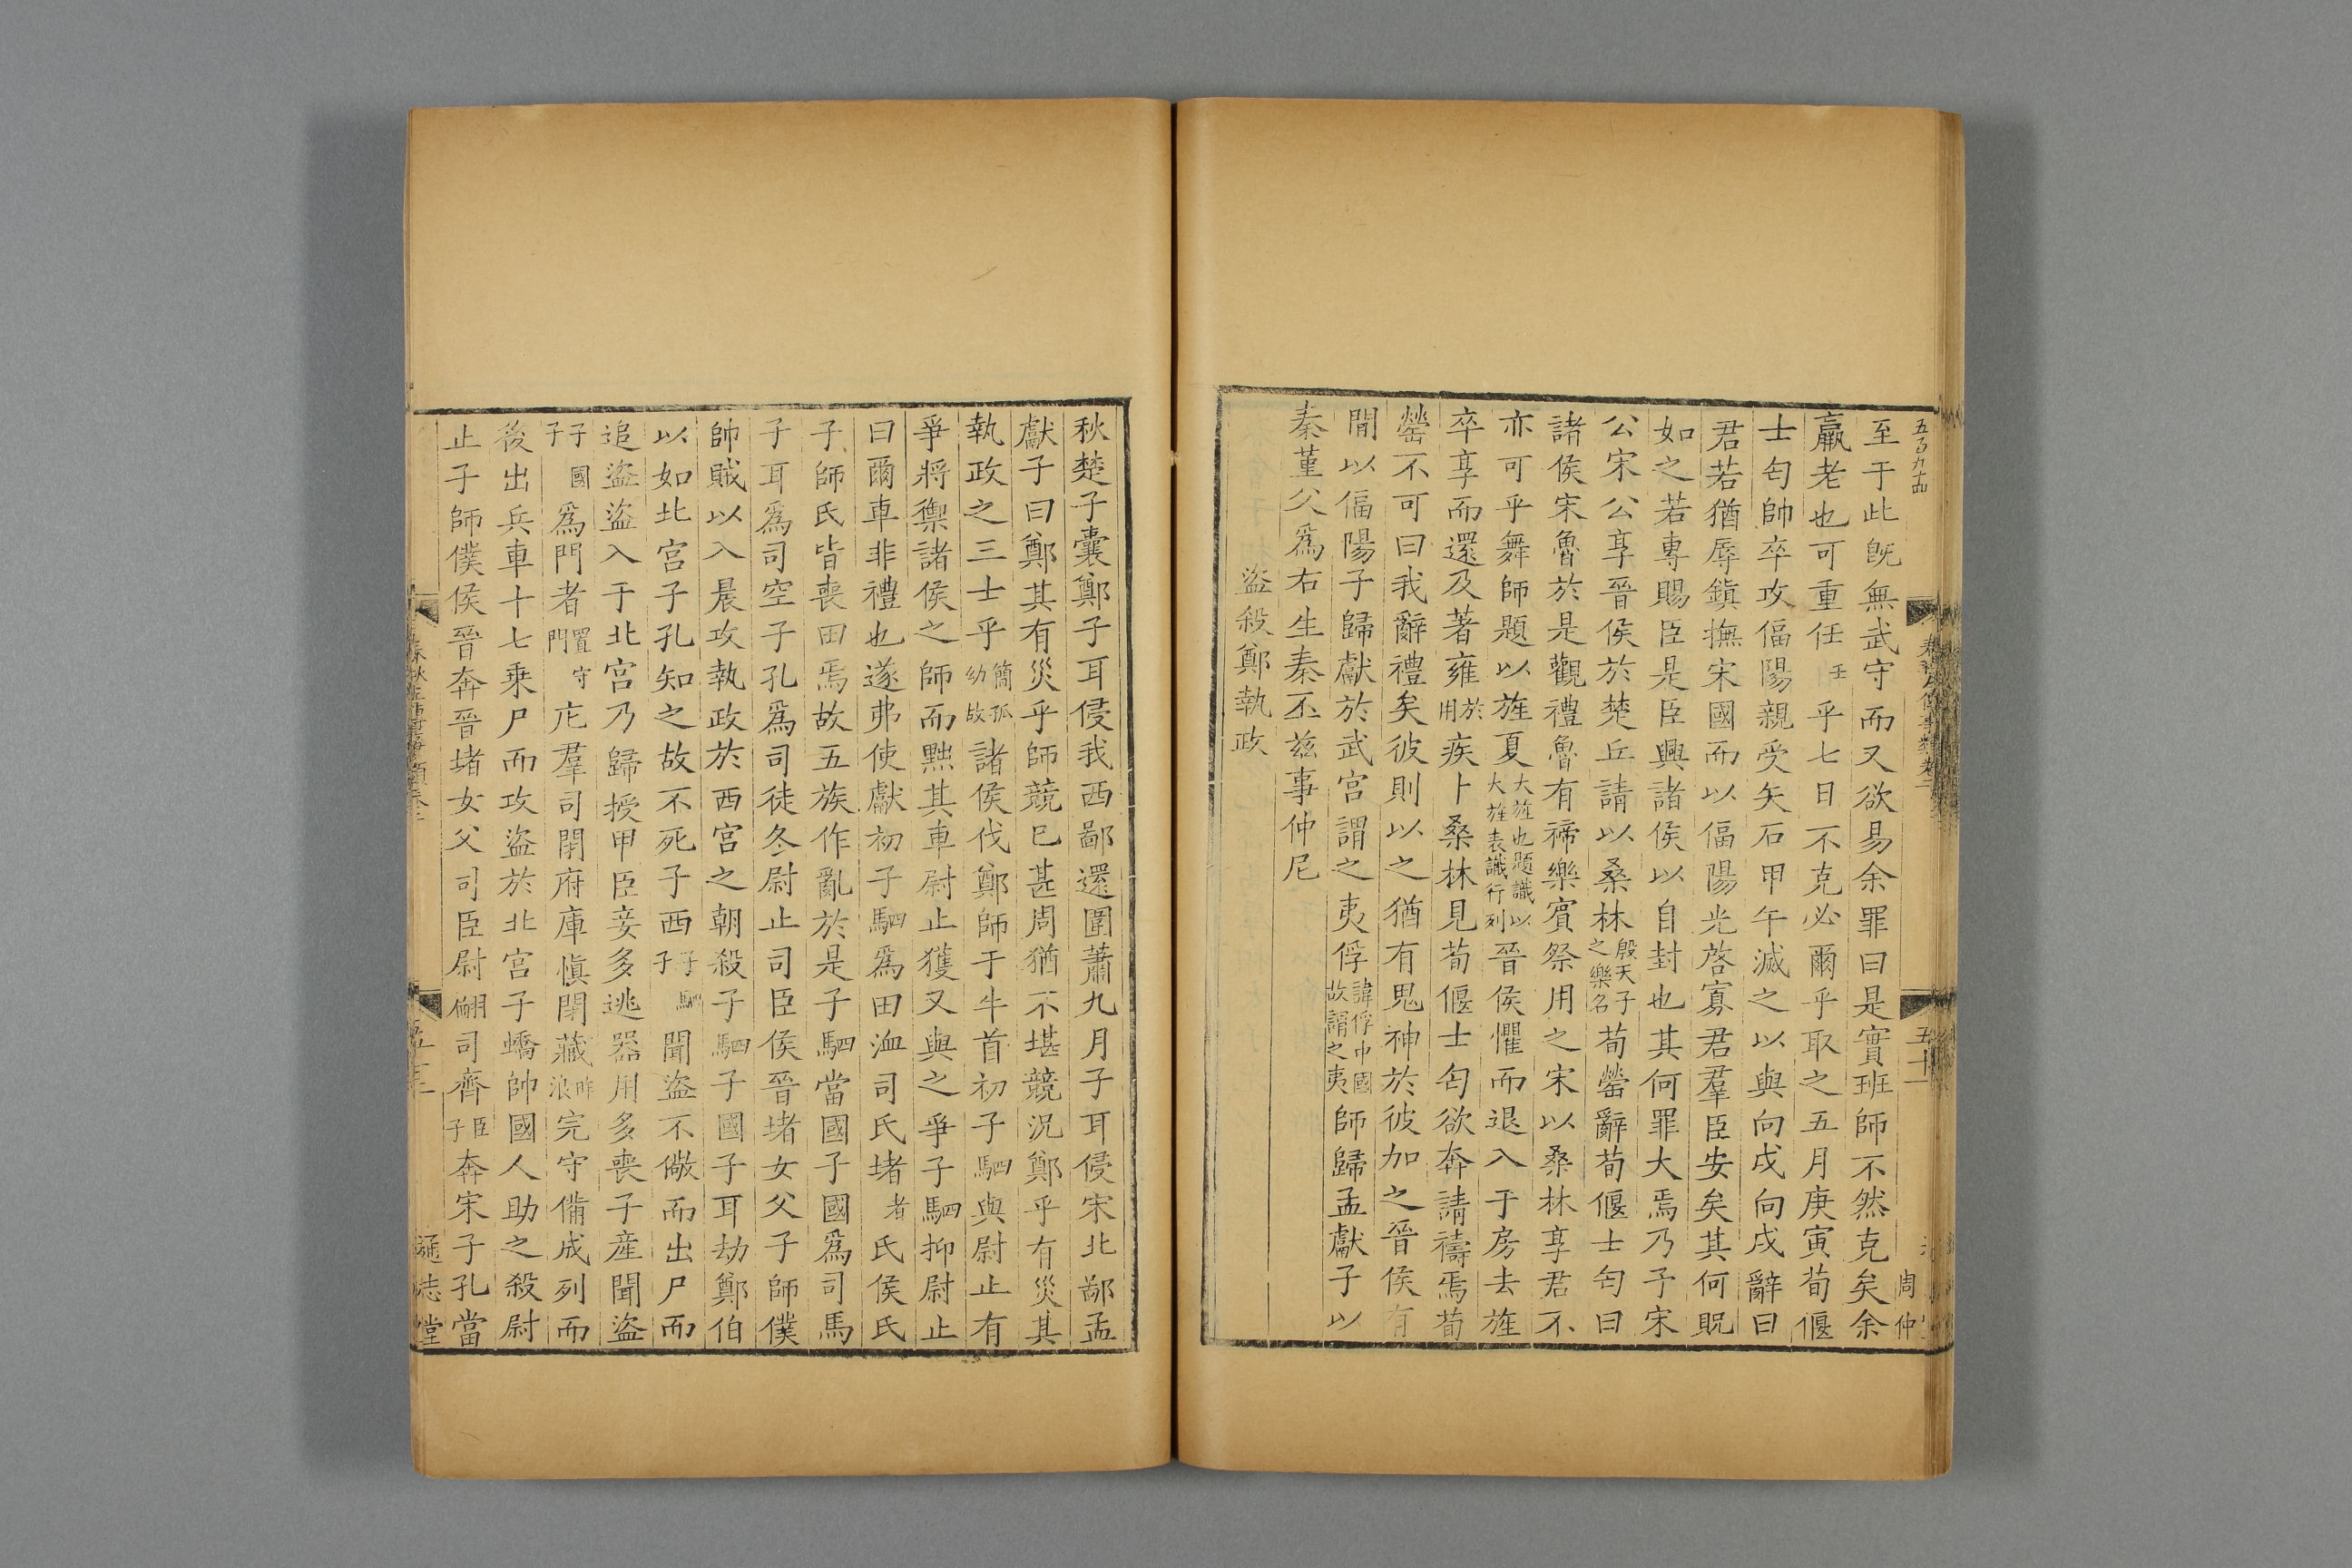 至于此既無武守而又欲易余罪曰是實班師不然克矣余
羸老也可重任壬乎七日不克必爾乎取之五月庚寅荀偃
士匄帥卒攻偪陽親受矢石甲午滅之以與向戌向戌辭曰
君若猶辱鎮撫宋國而以偪陽光啓寡君羣臣安矣其何貺
如之若專賜臣是臣興諸侯以自封也其何罪大焉乃予宋
公宋公享晉侯於楚丘請以桑林殷天子之樂名荀罃辭荀偃士匄曰
諸侯宋魯於是觀禮魯有禘樂賓祭用之宋以桑林享君不
亦可乎舞師題以旌夏大旌也題識以大旌表識行列晉侯懼而退入于房去旌
卒享而還及著雍於用疾卜桑林見荀偃士匄欲奔請禱焉荀
罃不可曰我辭禮矣彼則以之猶有鬼神於彼加之晉侯有
間以偪陽子歸獻於武宮謂之夷俘諱俘中國故謂之夷師歸孟獻子以
秦堇父爲右生秦丕茲事仲尼
盜殺鄭執政
五十一
周仲
秋楚子囊鄭子耳侵我西鄙還圍蕭九月子耳侵宋北鄙孟
獻子曰鄭其有災乎師競已甚周猶不堪競況鄭乎有災其
執政之三士乎簡孤幼故諸侯伐鄭師于牛首初子駟與尉止有
爭將禦諸侯之師而黜其車尉止獲又與之爭子駟抑尉止
曰爾車非禮也遂弗使獻初子駟爲田洫司氏堵者氏侯氏
子師氏皆喪田焉故五族作亂於是子駟當國子國爲司馬
子耳爲司空子孔爲司徒冬尉止司臣侯晉堵女父子師僕
帥賊以入晨攻執政於西宮之朝殺子駟子國子耳劫鄭伯
以如北宮子孔知之故不死子西子駟子聞盜不儆而出尸而
追盜盜入于北宮乃歸授甲臣妾多逃器用多喪子產聞盜
子國子爲門者置守門庀羣司閉府庫愼閉藏昨浪完守備成列而
後出兵車十七乘尸而攻盜於北宮子蟜帥國人助之殺尉
止子師僕侯晉奔晉堵女父司臣尉翩司齊臣子奔宋子孔當
通志堂